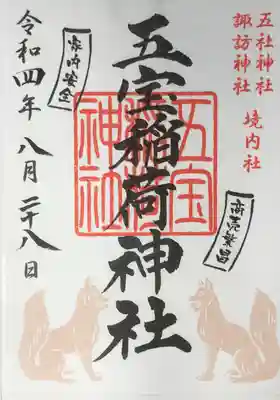 五社神社
諏訪神社
境内社
商売繁昌
五宝稲荷神社
五宝
神社
家内安全
令和四年八月二十八日